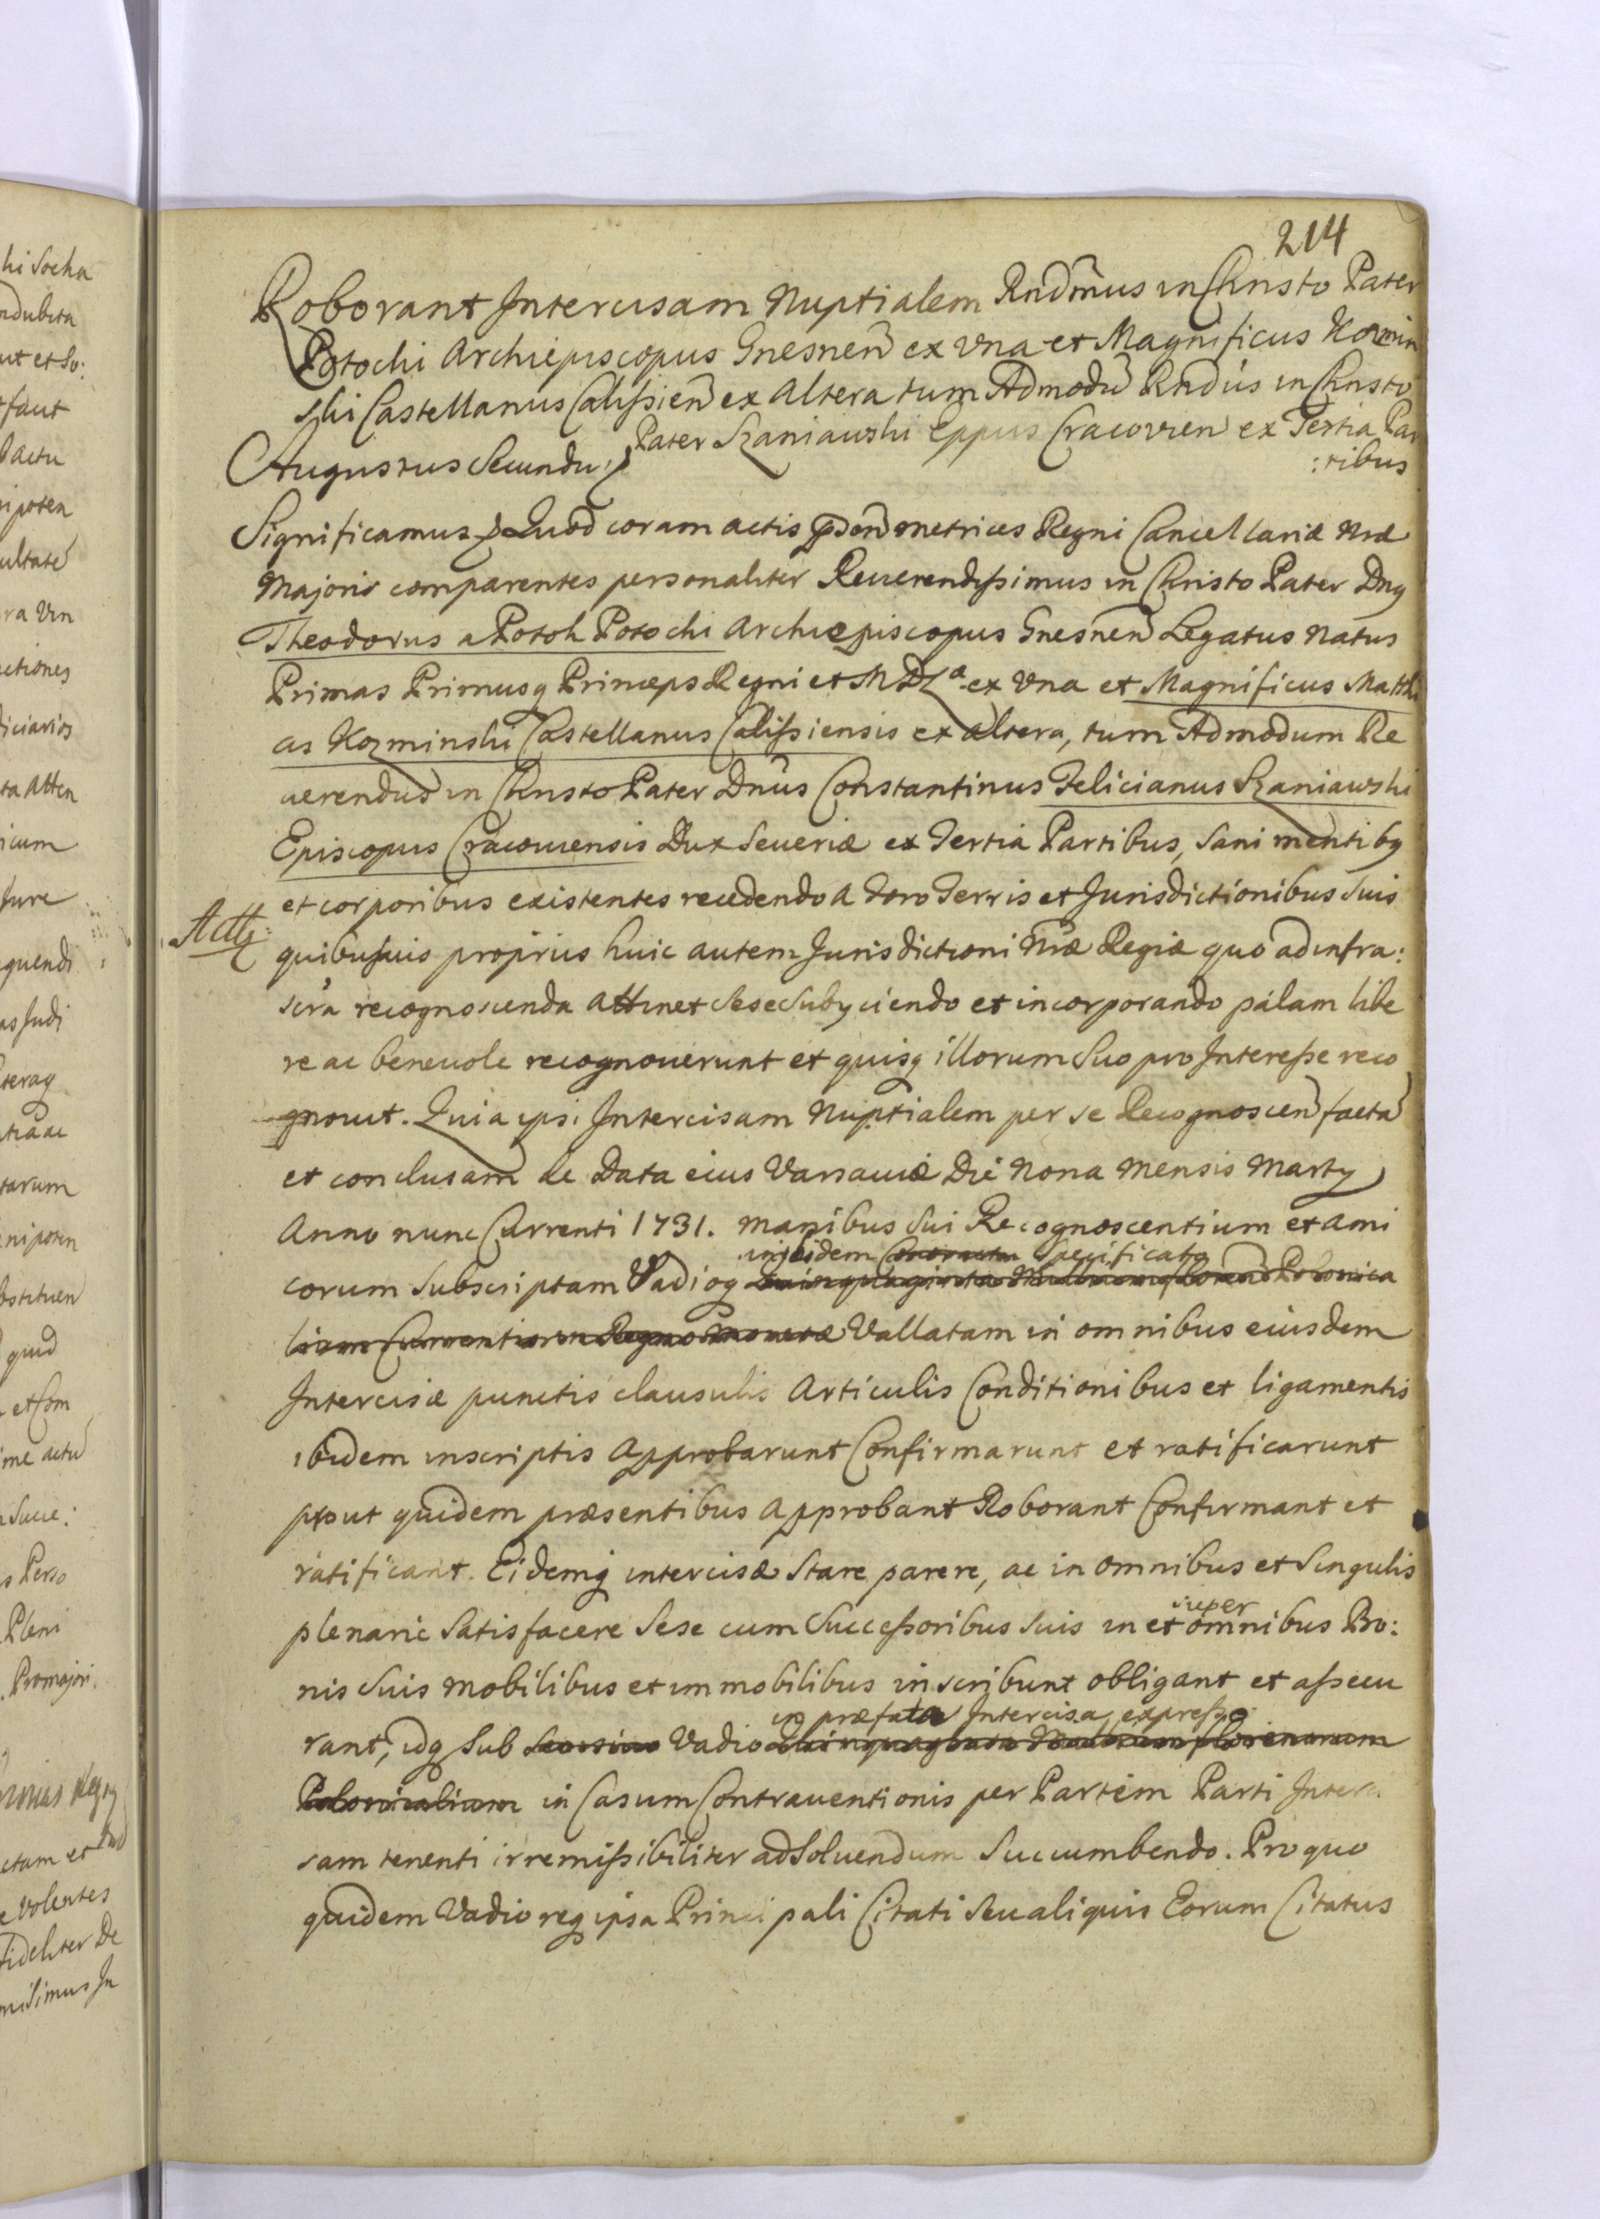 214
Roborant Intercisam Nuptialem Rndmus in Christo Pater
Potocki Archiepiscopus Gnesnen ex Una et Magnificus Kozmin
ski Castellanus Calissien ex Altera tum Admodu Rndus in Christo
Pater Szaniawski Eppus Cracovien ex Tertia Par
:tibus
Augustus Secundus
Significamus Quod coram actis metrices Regni Cancellariæ Nræ
Majoris comparentes personaliter Reuerendissimus in Christo Pater Dnus
Theodorus a Potok Potocki Archiepiscopus Gnesnen Legatus Natus
Primas Primusq Princeps Regni et M D L ex Una et Magnificus Matthi
as Kozminski Castellanus Calissiensis ex altera, tum Admodum Re
uerendus in Christo Pater Dnus Constantinus Felicianus Szaniawski
Episcopus Cracouiensis Dux Seueriæ ex Tertia Partibus, Sani mentibus
et corporibus existentes recedendo a Foro Terris et Jurisdictionibus Suis
quibusuis propriis huic autem Jurisdictioni Nræ Regiæ quo ad infra:
scra recognoscenda attinet Sese Subyciendo et incorporando palam libe
re ac beneuole recognouerunt et quisq illorum Suo pro Interesse reco
gnouit. Quia ipsi Intercisam Nuptialem per se Recognoscen factã
et conclusam de Data eius Varsauiæ Die Nona Mensis Marty
Anno nunc Currenti 1731. manibus Sui Recognoscentium et Ami
in eidem Contractu Specificato
corum Subscriptam Vadioq Quinquaginta Millium florenor Polonica
lium Currentis in Regno Monetæ Vallatam in omnibus eiusdem
Intercisæ punctis clausulis Articulis Conditionibus et ligamentis
ibidem inscriptis Approbarunt Confirmarunt et ratificarunt
prout quidem præsentibus Approbant Roborant Confirmant et
ratificant. Eidemq intercisæ Stare parere, ac in omnibus et Singulis
super
plenarie Satisfacere Sese cum Successoribus Suis in et omnibus Bo:
nis Suis Mobilibus et immobilibus inscribunt obligant et assecu
in præfata Intercisa expresso
rant, idq Sub Vadio Quinquaginta Millium florenorum
Polonicalium in Casum Contrauentionis per Partem Parti Interci
sam tenenti irremissibiliter ad Soluendum Succumbendo. Pro quo
quidem Vadio req ipsa Principali Citati Seu aliquis Eorum Citatus